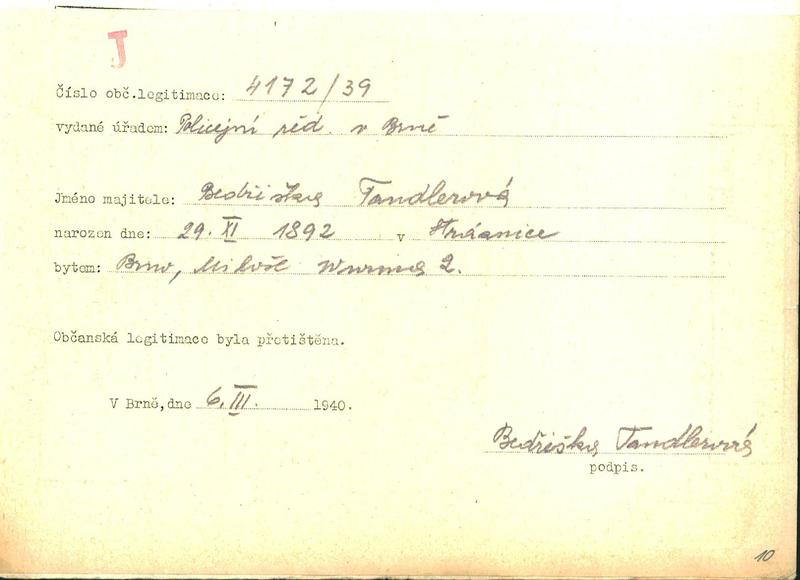 J
Číslo obč.legitimace: 4172/39
vydané úřadem: Policejní řed. v Brně
Jméno majitele: Bedřiška Tandlerová
narozen dne: 29. XI 1892 v Hranice
bytem: Brno, Mikoše Wurma 2.
Občanská legitimace byla přetištěna.
V Brně,dne 6. III. 1940.
Bedřiška Tandlerová
podpis.
10